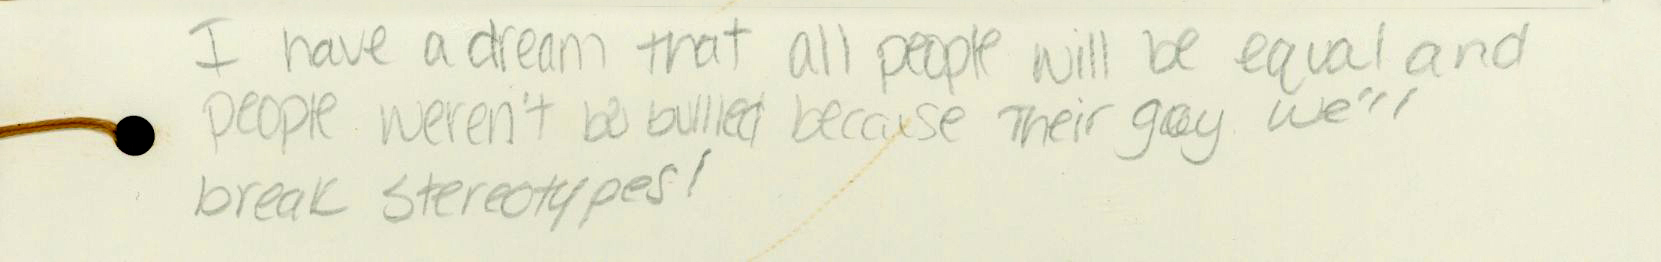 I have a dream that all people will be equal and
people weren't be bullied because their gay we'll
break stereotypes!